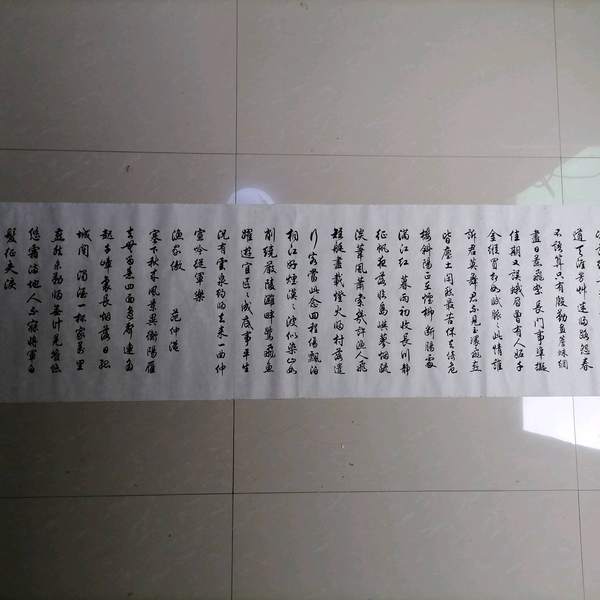 道天涯芳草迷歸路怨春
不語算只有殷勤畫簷蛛網
盡日惹飛絮長門事準擬
佳期又誤蛾眉曾有人妒千
金縱買相如賦脈々此情誰
訴君莫舞君不見玉環飛燕
皆塵土閒愁最苦休去倚危
樓斜陽正在煙柳斷腸處
滿江紅 暮雨初收長川靜
征帆夜落臨島嶼蓼烟疏
淡葦風蕭索幾許漁人飛
短艇盡載燈火歸村落遣
行客當此念回程傷飄泊
桐江好煙漠々波似染山如
削繞嚴陵灘畔鷺飛魚
躍遊宦區々成底事平生
況有雲泉約歸去來一曲仲
宣吟從軍樂
漁家傲 范仲淹
塞下秋來風景異衡陽雁
去無留意四面邊聲連角
起千嶂裏長烟落日孤
城閉 濁酒一杯家萬里
燕然未勒歸無計羌管悠
悠霜滿地人不寐將軍白
髮征夫淚